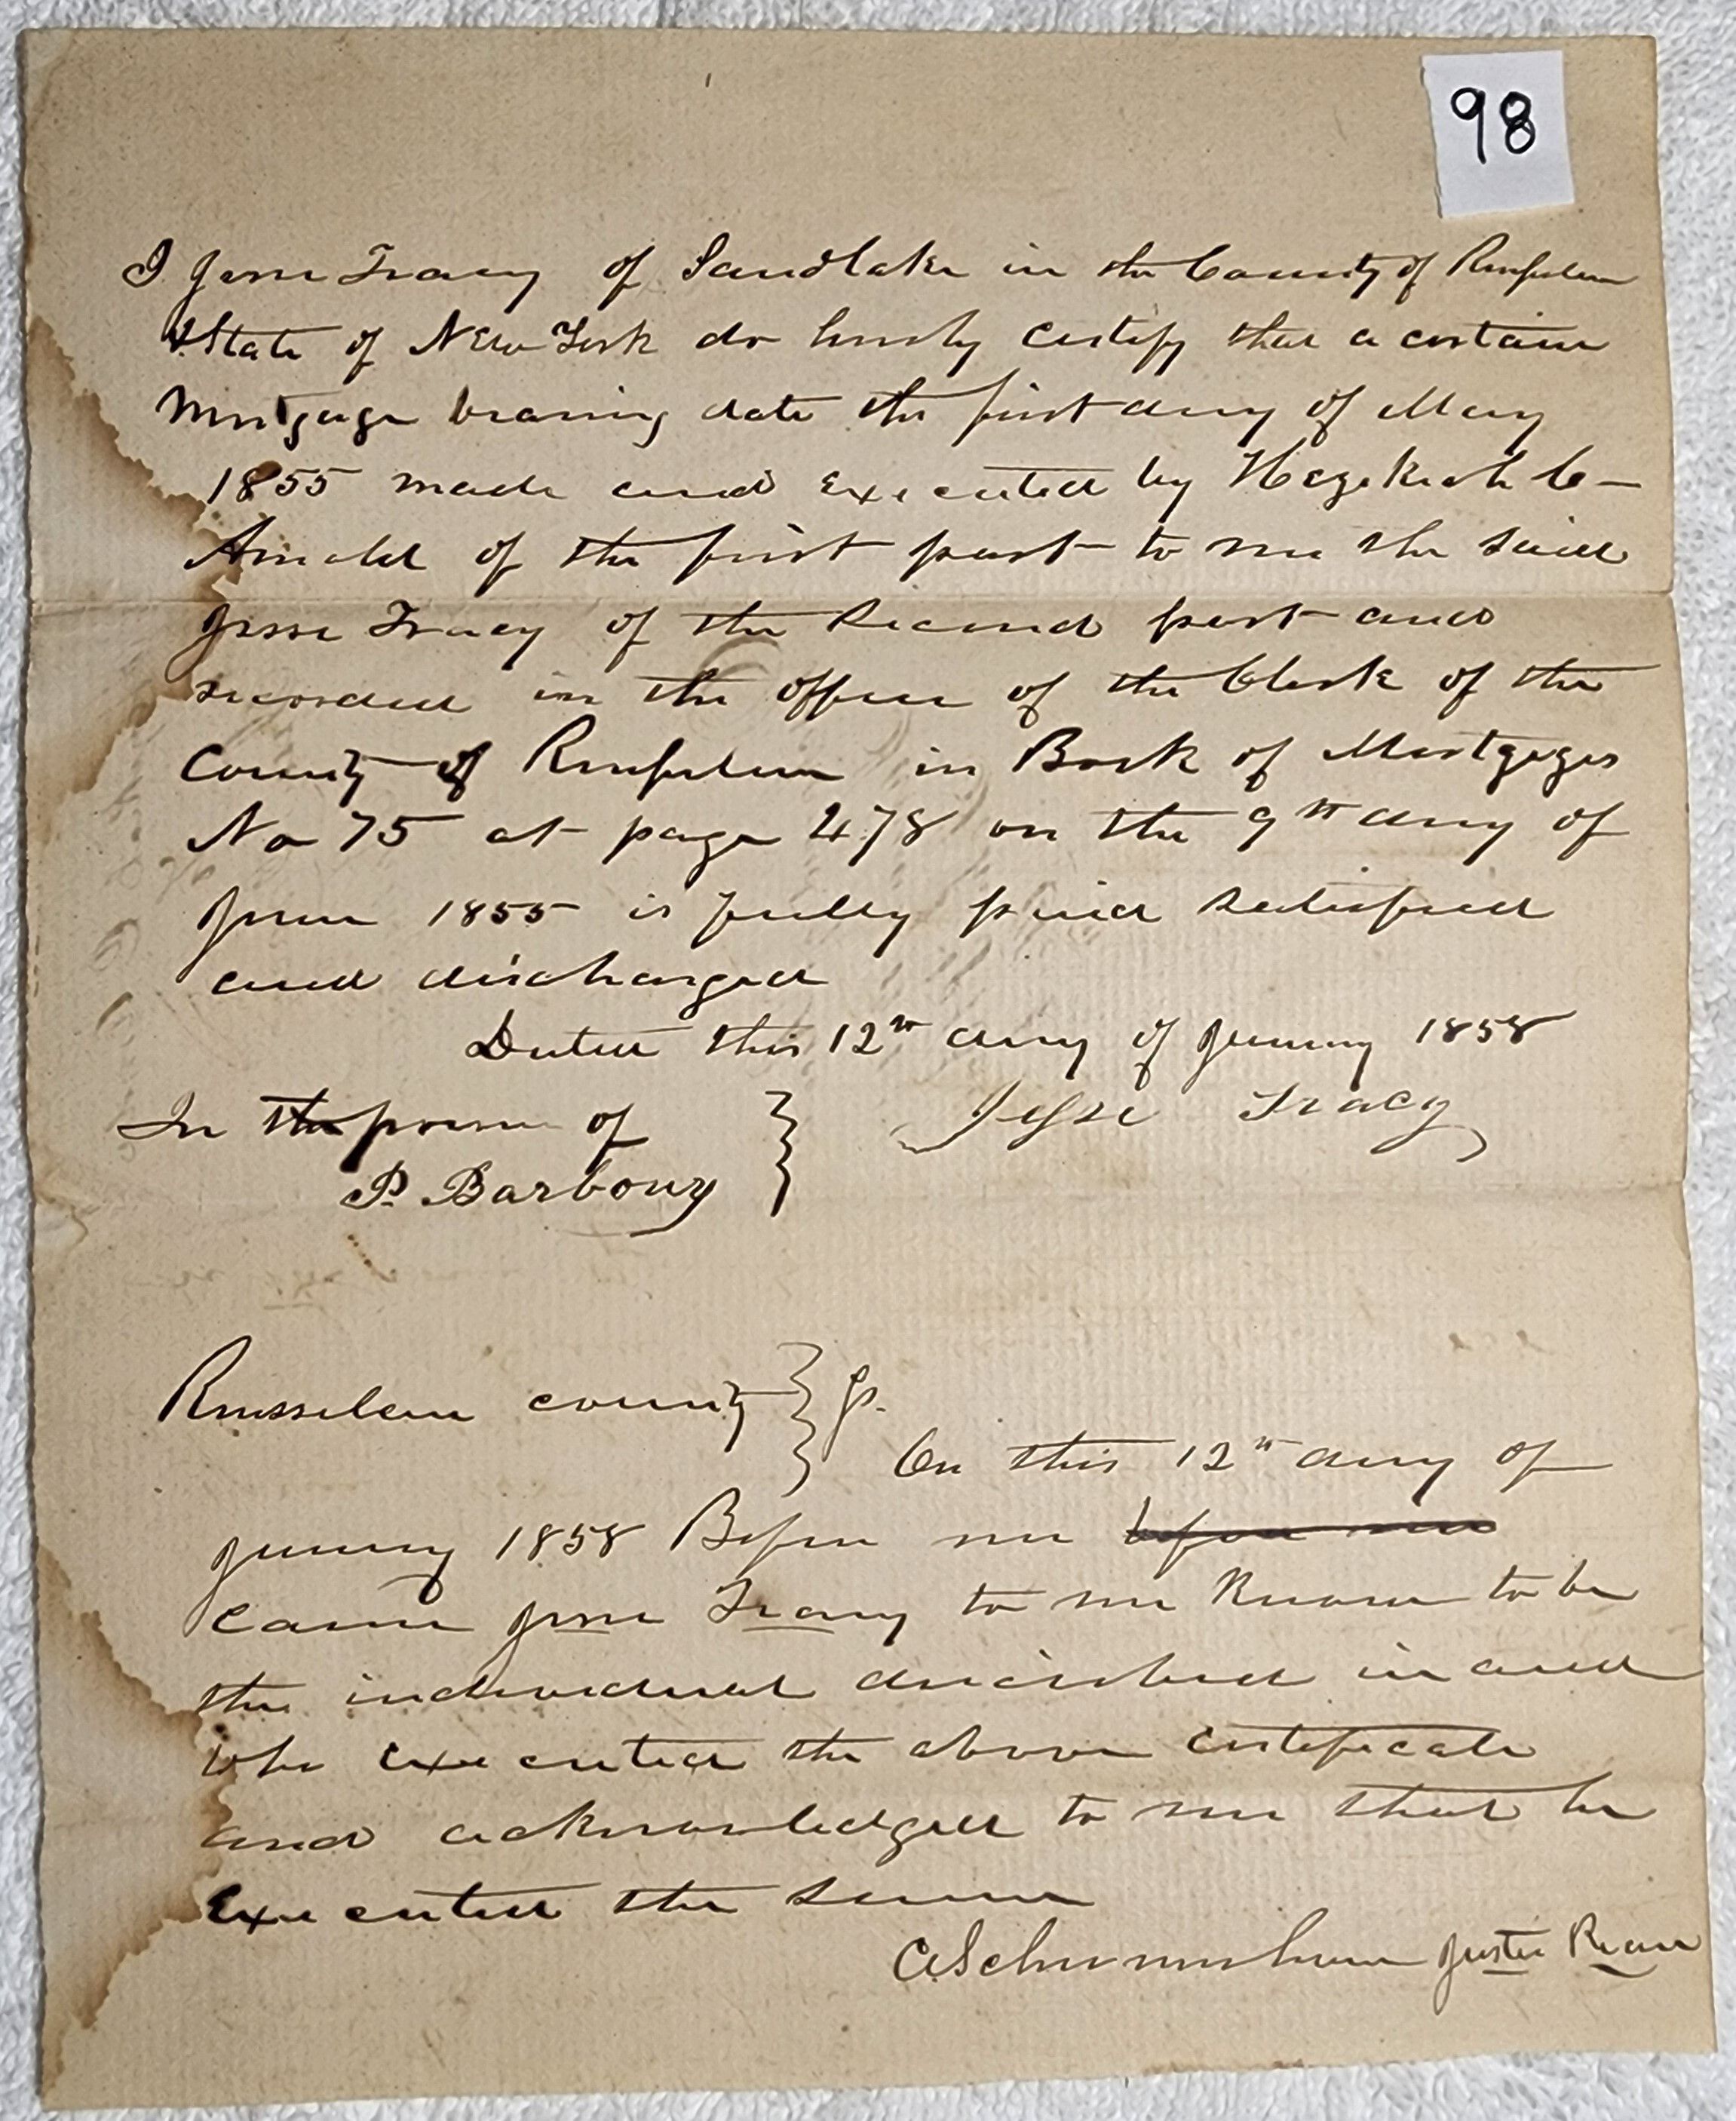 98
I Jesse Tracy of Sandlake in the County of Rensselaer
& State of New York do hereby certify that a certain
Mortgage bearing date the first day of May
1855 made and executed by Hezekiah C
Arnold of the first part to me the said
Jesse Tracy of the second part and
recorded in the office of the Clerk of the
County of Rensselaer in Book of Mortgages
No 75 at page 478 on the 9th day of
June 1855 is fully paid satisfied
and discharged
Dated this 12th day of January 1858
In the presence of
Jesse Tracy
P. Barbour
Rensselaer county ss.
On this 12th day of
January 1858 Before me before me
came Jesse Tracy to me known to be
the individual described in and
who executed the above certificate
and acknowledged to me that he
executed the same
Justice Peace